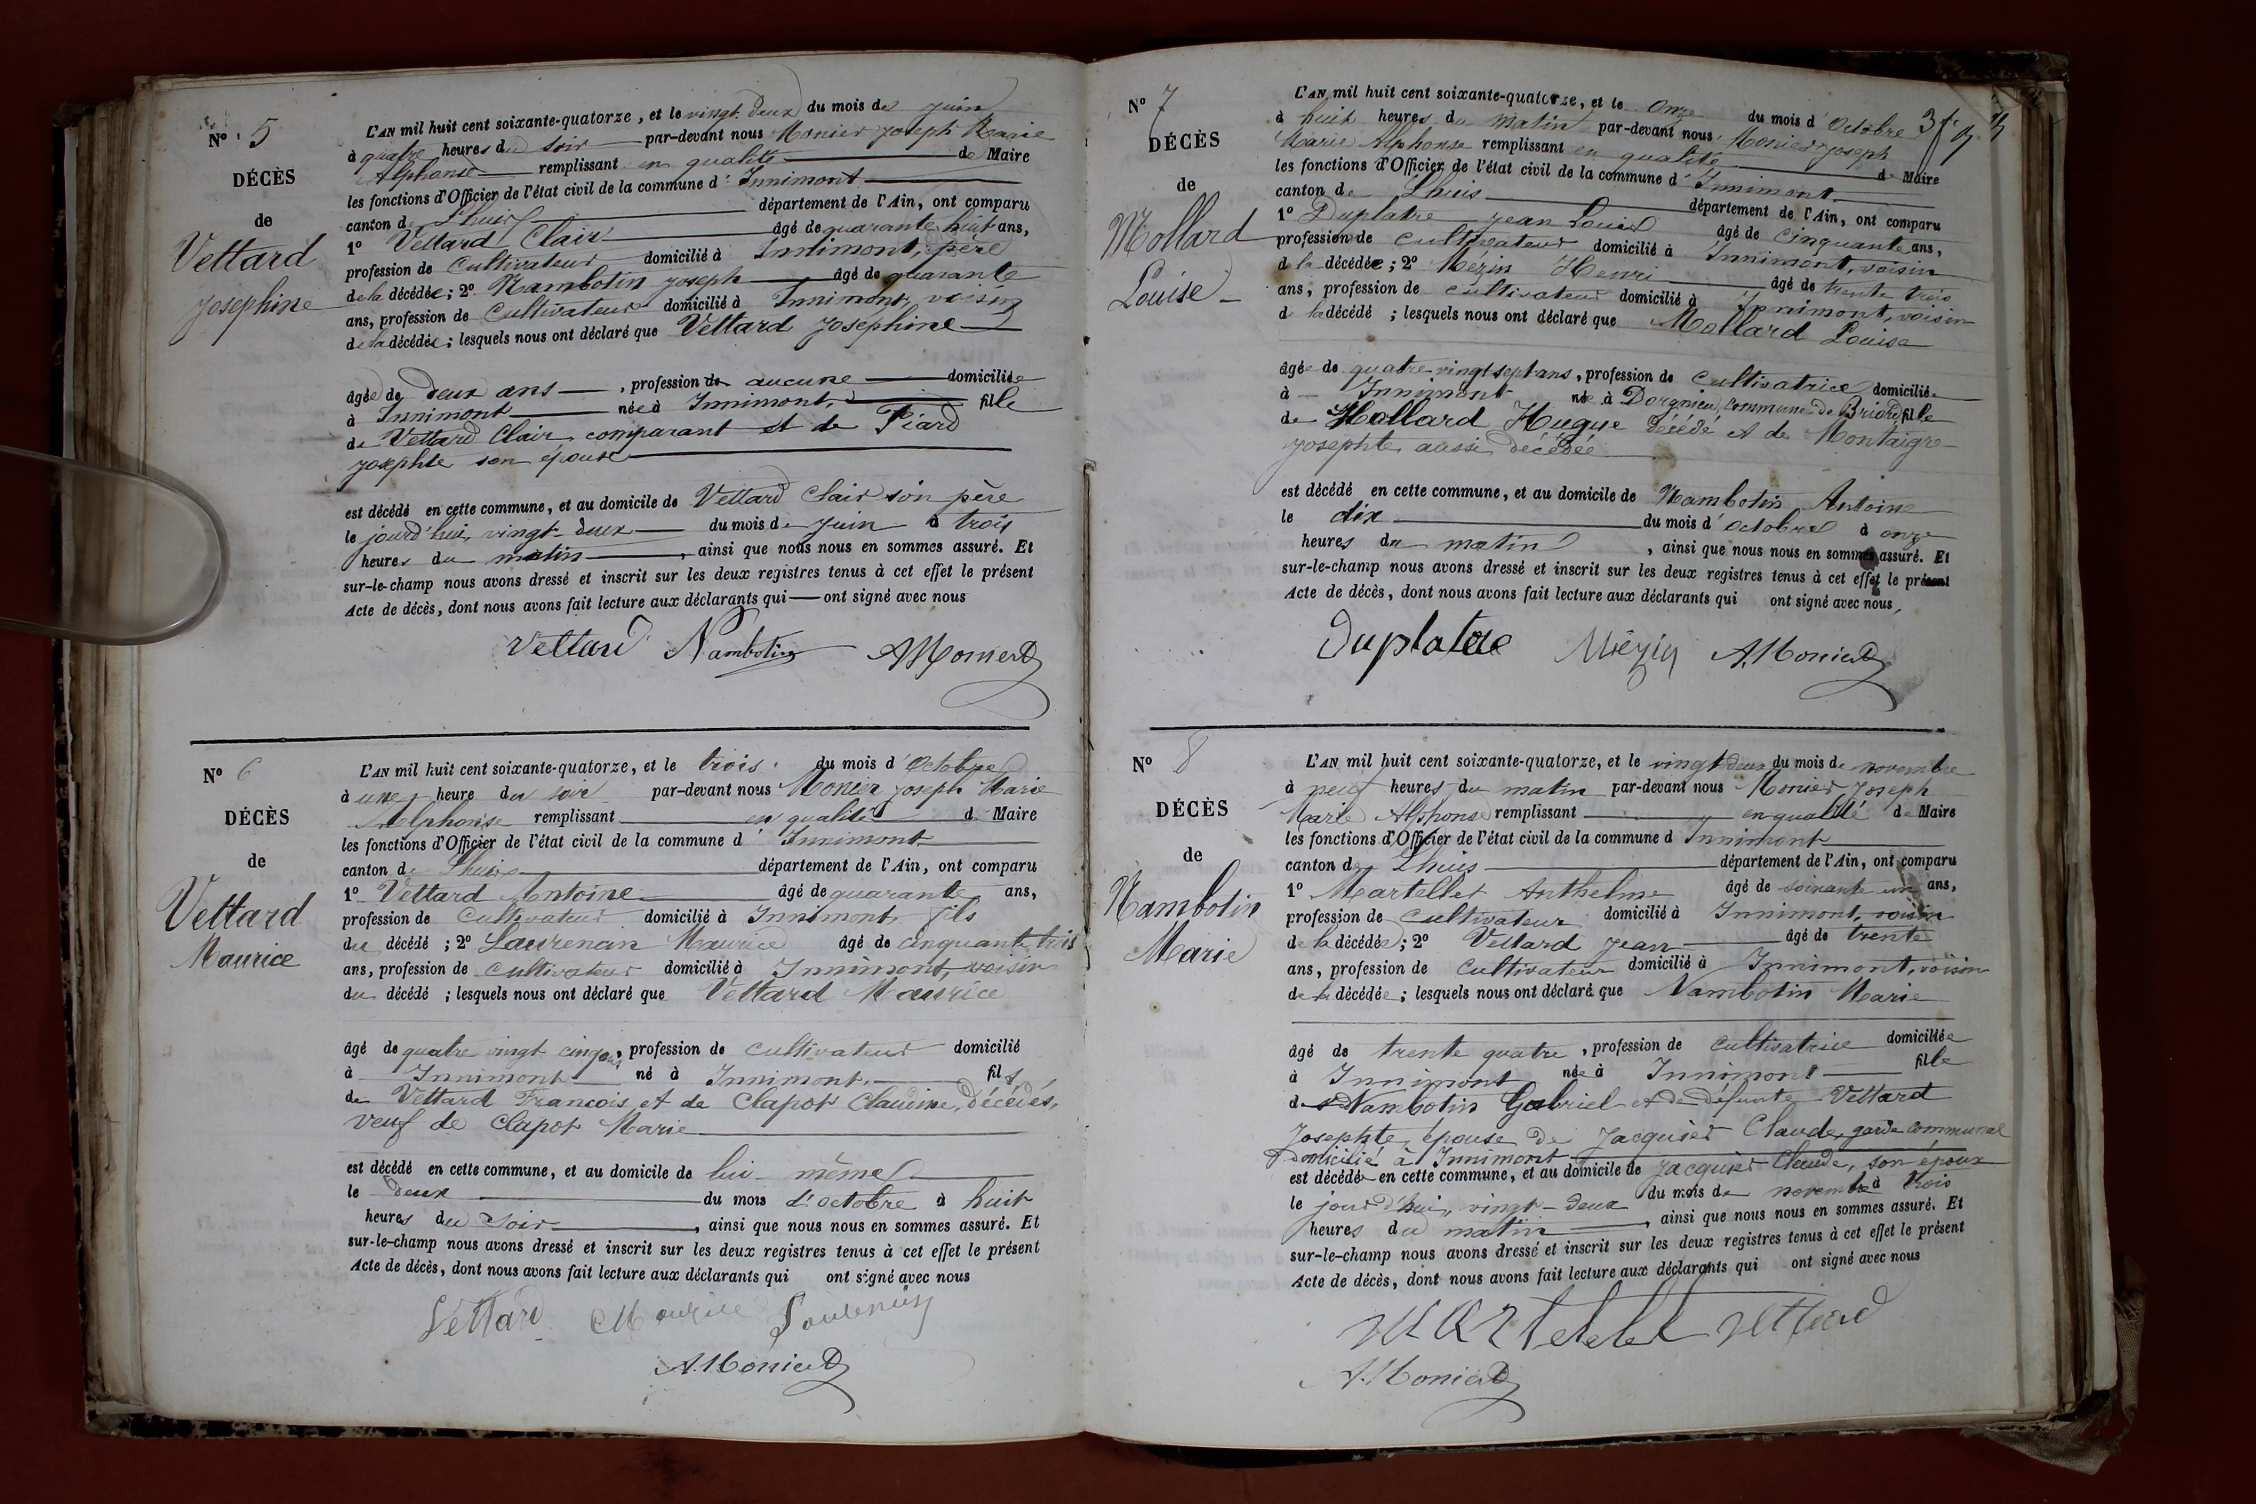 N° 5
DÉCÈS
de
Vettard
Josephine
L'AN mil huit cent soixante-quatorze, et le vingt deux du mois de juin
à quatre heures du soir par-devant nous Monier Joseph Marie
Alphonse remplissant en qualité de Maire
les fonctions d'Officier de l'état civil de la commune d'Innimont
canton de Lhuis département de l'Ain, ont comparu
1° Vettard Clair âgé de quarante huit ans,
profession de Cultivateur domicilié à Innimont, père
de la décédée; 2° Nambotin Joseph âgé de quarante
ans, profession de Cultivateur domicilié à Innimont, voisin
de la décédée; lesquels nous ont déclaré que Vettard Josephine
âgée de deux ans, profession de aucune domiciliée
à Innimont née à Innimont, fille
de Vettard Clair comparant et de Piard
Josephte son épouse
est décédé en cette commune, et au domicile de Vettard Clair son père
le jourd'hui, vingt-deux du mois de juin à trois
heures du matin, ainsi que nous nous en sommes assuré. Et
sur-le-champ nous avons dressé et inscrit sur les deux registres tenus à cet effet le présent
Acte de décès, dont nous avons fait lecture aux déclarants qui ont signé avec nous
Vettard Nambotin AMonier
N° 6
DÉCÈS
de
Vettard
Maurice
L'AN mil huit cent soixante-quatorze, et le trois du mois d'Octobre
à une heure du soir par-devant nous Monier Joseph Marie
Alphonse remplissant en qualité de Maire
les fonctions d'Officier de l'état civil de la commune d'Innimont
canton de Lhuis département de l'Ain, ont comparu
1° Vettard Antoine âgé de quarante ans,
profession de Cultivateur domicilié à Innimont, fils
du décédé; 2° Laurencin Maurice âgé de cinquante trois
ans, profession de Cultivateur domicilié à Innimont, voisin
du décédé; lesquels nous ont déclaré que Vettard Maurice
âgé de quatre vingt cinq ans, profession de Cultivateur domicilié
à Innimont né à Innimont, fils
de Vettard François et de Clapot Claudine, décédés,
veuf de Clapot Marie
est décédé en cette commune, et au domicile de lui-même
le deux du mois d'octobre à huit
heures du soir, ainsi que nous nous en sommes assuré. Et
sur-le-champ nous avons dressé et inscrit sur les deux registres tenus à cet effet le présent
Acte de décès, dont nous avons fait lecture aux déclarants qui ont signé avec nous
Vettard Maurice
A. Monier
N° 7
DÉCÈS
de
Mollard
Louise
L'AN mil huit cent soixante-quatorze, et le onze du mois d'Octobre
à huit heures du matin par-devant nous Monier Joseph
Marie Alphonse remplissant en qualité de Maire
les fonctions d'Officier de l'état civil de la commune d'Innimont
canton de Lhuis département de l'Ain, ont comparu
1° Duplatre Jean Louis âgé de cinquante ans,
profession de cultivateur domicilié à Innimont, voisin
de la décédée; 2° Mézin Henri âgé de trente trois
ans, profession de cultivateur domicilié à Innimont, voisin
de la décédé; lesquels nous ont déclaré que Mollard Louise
âgée de quatre vingt sept ans, profession de Cultivatrice domiciliée
à Innimont née à Dorgnieu, Commune de Briord, fille
de Mollard Hugue décédé et de Montaigre
Josephte, aussi décédée
est décédé en cette commune, et au domicile de Nambotin Antoine
le dix du mois d'octobre à onze
heures du matin, ainsi que nous nous en sommes assuré. Et
sur-le-champ nous avons dressé et inscrit sur les deux registres tenus à cet effet le présent
Acte de décès, dont nous avons fait lecture aux déclarants qui ont signé avec nous,
Duplatre Mézin A. Monier
N° 8
DÉCÈS
de
Nambotin
Marie
L'AN mil huit cent soixante-quatorze, et le vingt deux du mois de novembre
à neuf heures du matin par-devant nous Monier Joseph
Marie Alphonse remplissant en qualité de Maire
les fonctions d'Officier de l'état civil de la commune d Innimont
canton de Lhuis département de l'Ain, ont comparu
1° Martellet Anthelme âgé de soixante un ans,
profession de Cultivateur domicilié à Innimont, voisin
de la décédée; 2° Vettard Jean âgé de trente
ans, profession de Cultivateur domicilié à Innimont, voisin
de la décédée; lesquels nous ont déclaré que Nambotin Marie
âgé de trente quatre, profession de Cultivatrice domiciliée
à Innimont née à Innimont fille
de Nambotin Gabriel et de défunte Vettard
Josephte, épouse de Jacquier Claude, garde communal
domicilié à Innimont
est décédée en cette commune, et au domicile de Jacquier Claude, son époux
le jourd'hui, vingt-deux du mois de novembre à trois
heures du matin, ainsi que nous nous en sommes assuré. Et
sur-le-champ nous avons dressé et inscrit sur les deux registres tenus à cet effet le présent
Acte de décès, dont nous avons fait lecture aux déclarants qui ont signé avec nous
Martelet Vettard
A. Monier